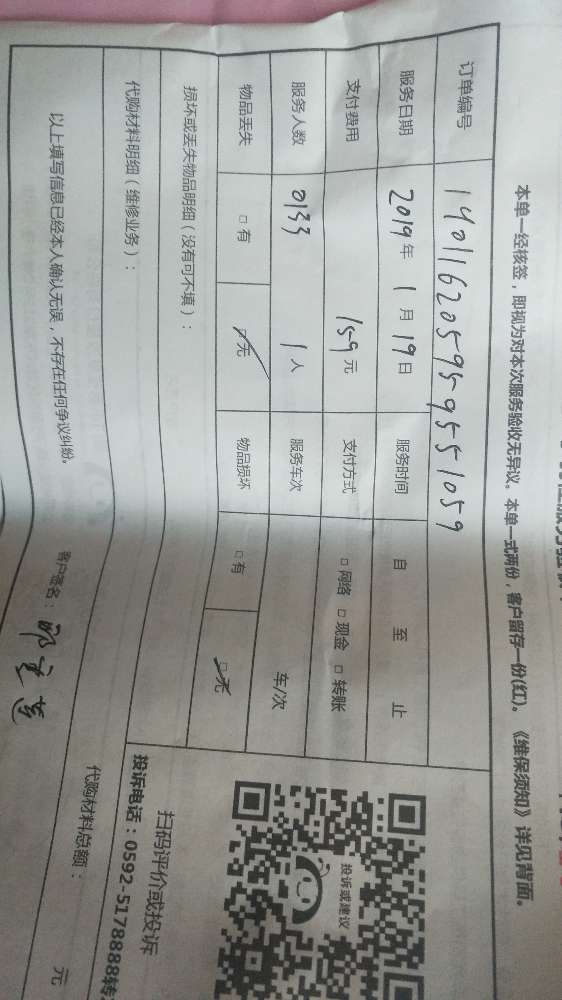 本单一经核签，即视为对本次服务验收无异议。本单一式两份，客户留存一份(红)。《维保须知》详见背面。
订单编号 14011620595955 1059
服务日期 2019年 1月 19日 服务时间 自 至 止
支付费用 159元 支付方式 □ 网络 □ 现金 □ 转账
服务人数 0133 1人 服务车次 车/次
物品丢失 □ 有 □ 无 物品损坏 □ 有 □ 无
损坏或丢失物品明细（没有可不填）：
代购材料明细（维修业务）：
代购材料总额： 元
以上填写信息已经本人确认无误，不存在任何争议纠纷。
客户签名：
投诉或建议
扫码评价或投诉
投诉电话：0592-5178888转